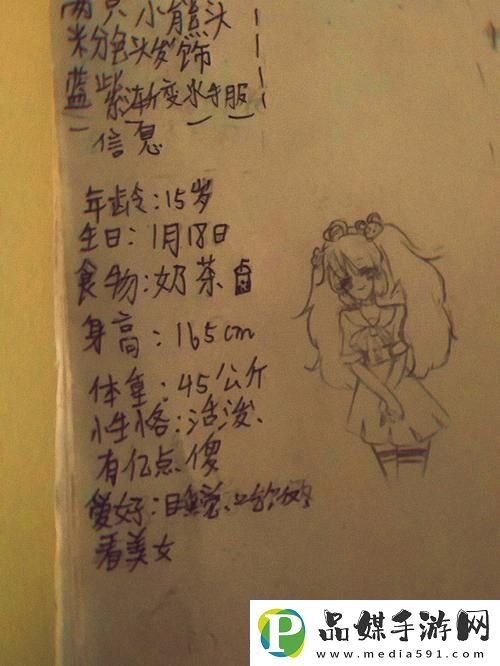 两只小熊头
粉色头发饰
蓝紫渐变水手服
信息
年龄:15岁
生日:1月18日
食物:奶茶
身高:165cm
体重:45公斤
性格:活泼、
有亿点傻
爱好:睡觉、
看美女
品媒手游网
www.media591.com